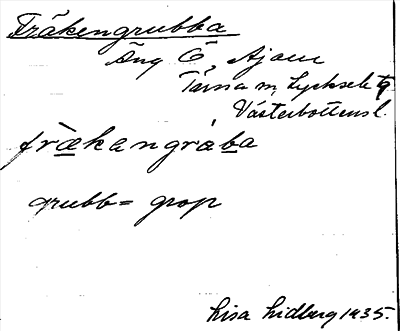 Fräkengrubba
Äng Ö, Ajaur
Tärna sn, Lycksele lg
Västerbottens l.
fræ̀kangrába
grubb = grop
Lisa Lidberg 1935.